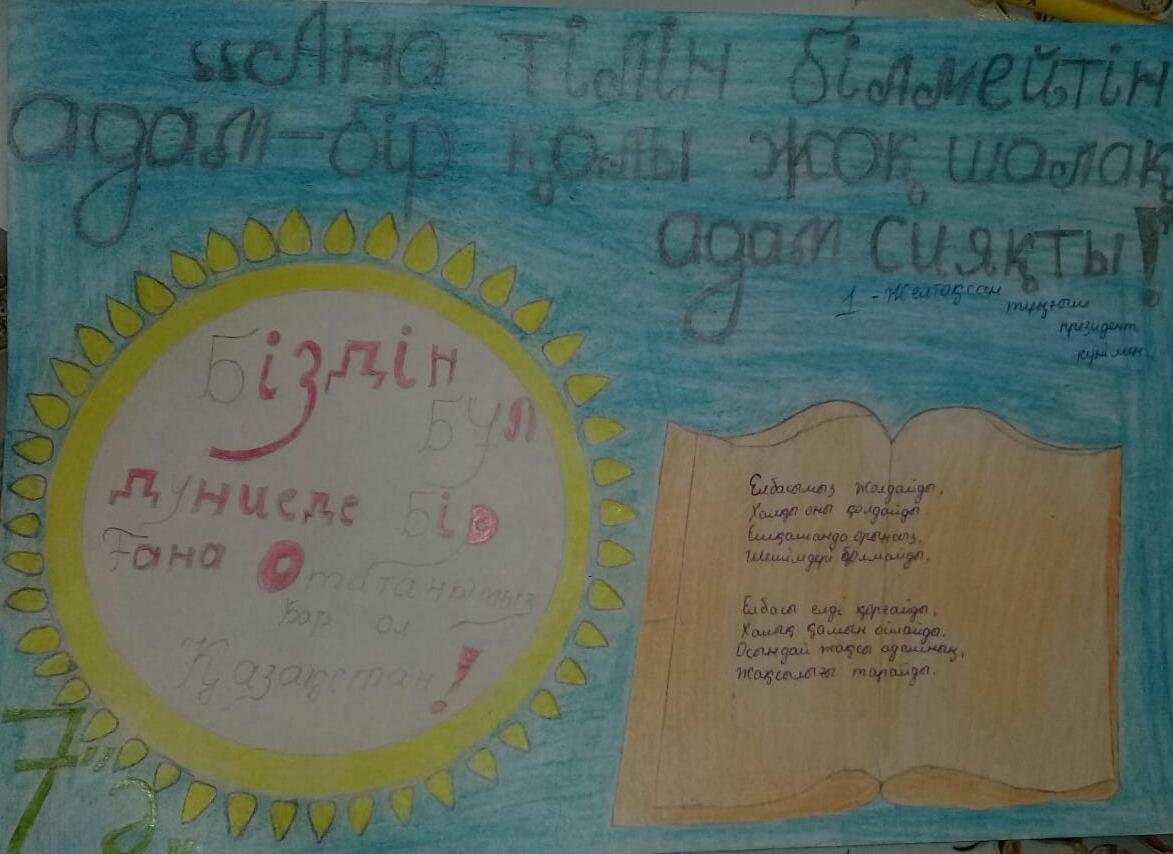 "Ана тілін білмейтін
адам-бір қолы жоқ шолақ
адам сияқты!
1 - Желтоқсан
тұңғыш
президент
күнімен.
Біздін
Бул
дуниеде Бір
Ғана Отатанымыз
Бар ол
Қазақстан!
7 "а"
Елбасымыз жолдайды,
Халқы оны қолдайды.
Ешқашанда орынсыз,
Шешімдері болмайды.
Елбасы елді қорғайды,
Халық қамын ойлайды.
Осындай жақсы адамның,
Жақсылығы тарайды.